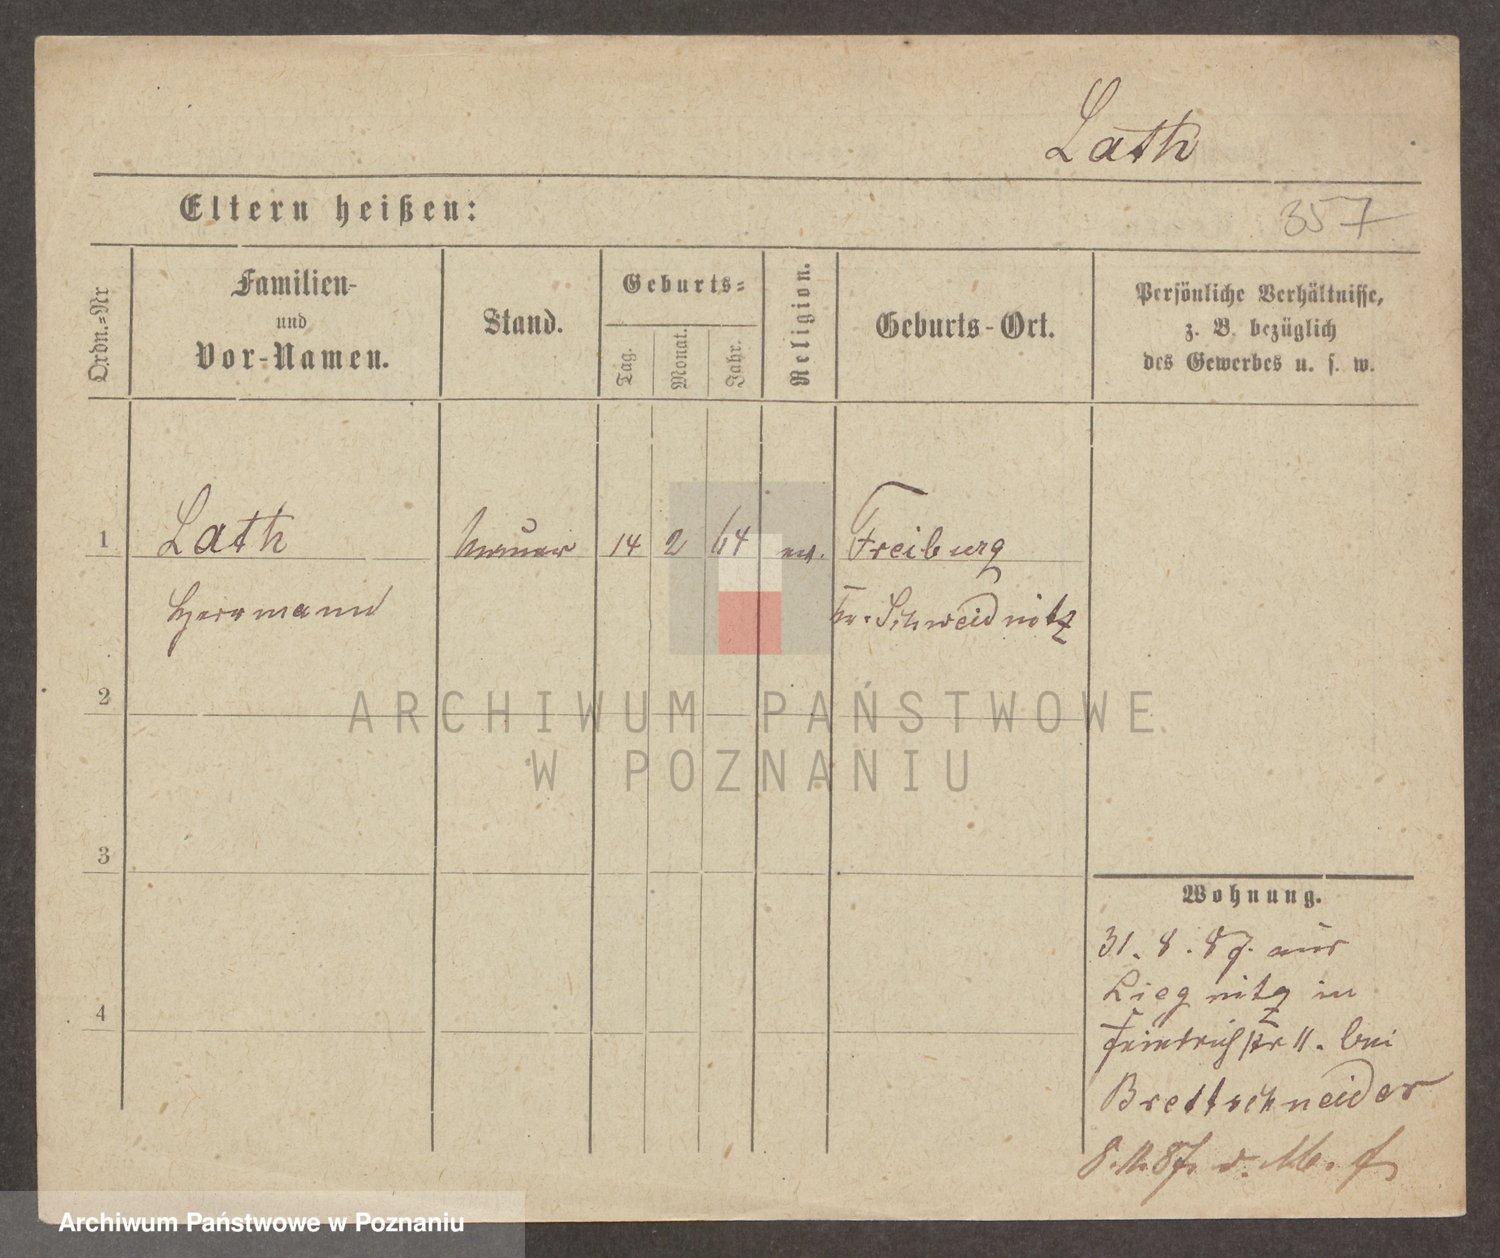 Lath
Eltern heißen:
357
Ordn.-Nr
Familien-
und
Vor-Namen.
Stand.
Geburts-
Tag.
Monat.
Jahr.
Religion.
Geburts-Ort.
Persönliche Verhältnisse,
z. B. bezüglich
des Gewerbes u. s. w.
1
Lath
14
2
64
ev.
Freiburg
Herrmann
Kr. Schweidnitz
2
ARCHIWUM PAŃSTWOWE
W POZNANIU
3
Wohnung.
31. 8. 87. aus
Liegnitz in
4
Friedrichstr 11. bei
Brettschneider
8.11.87.
Archiwum Państwowe w Poznaniu